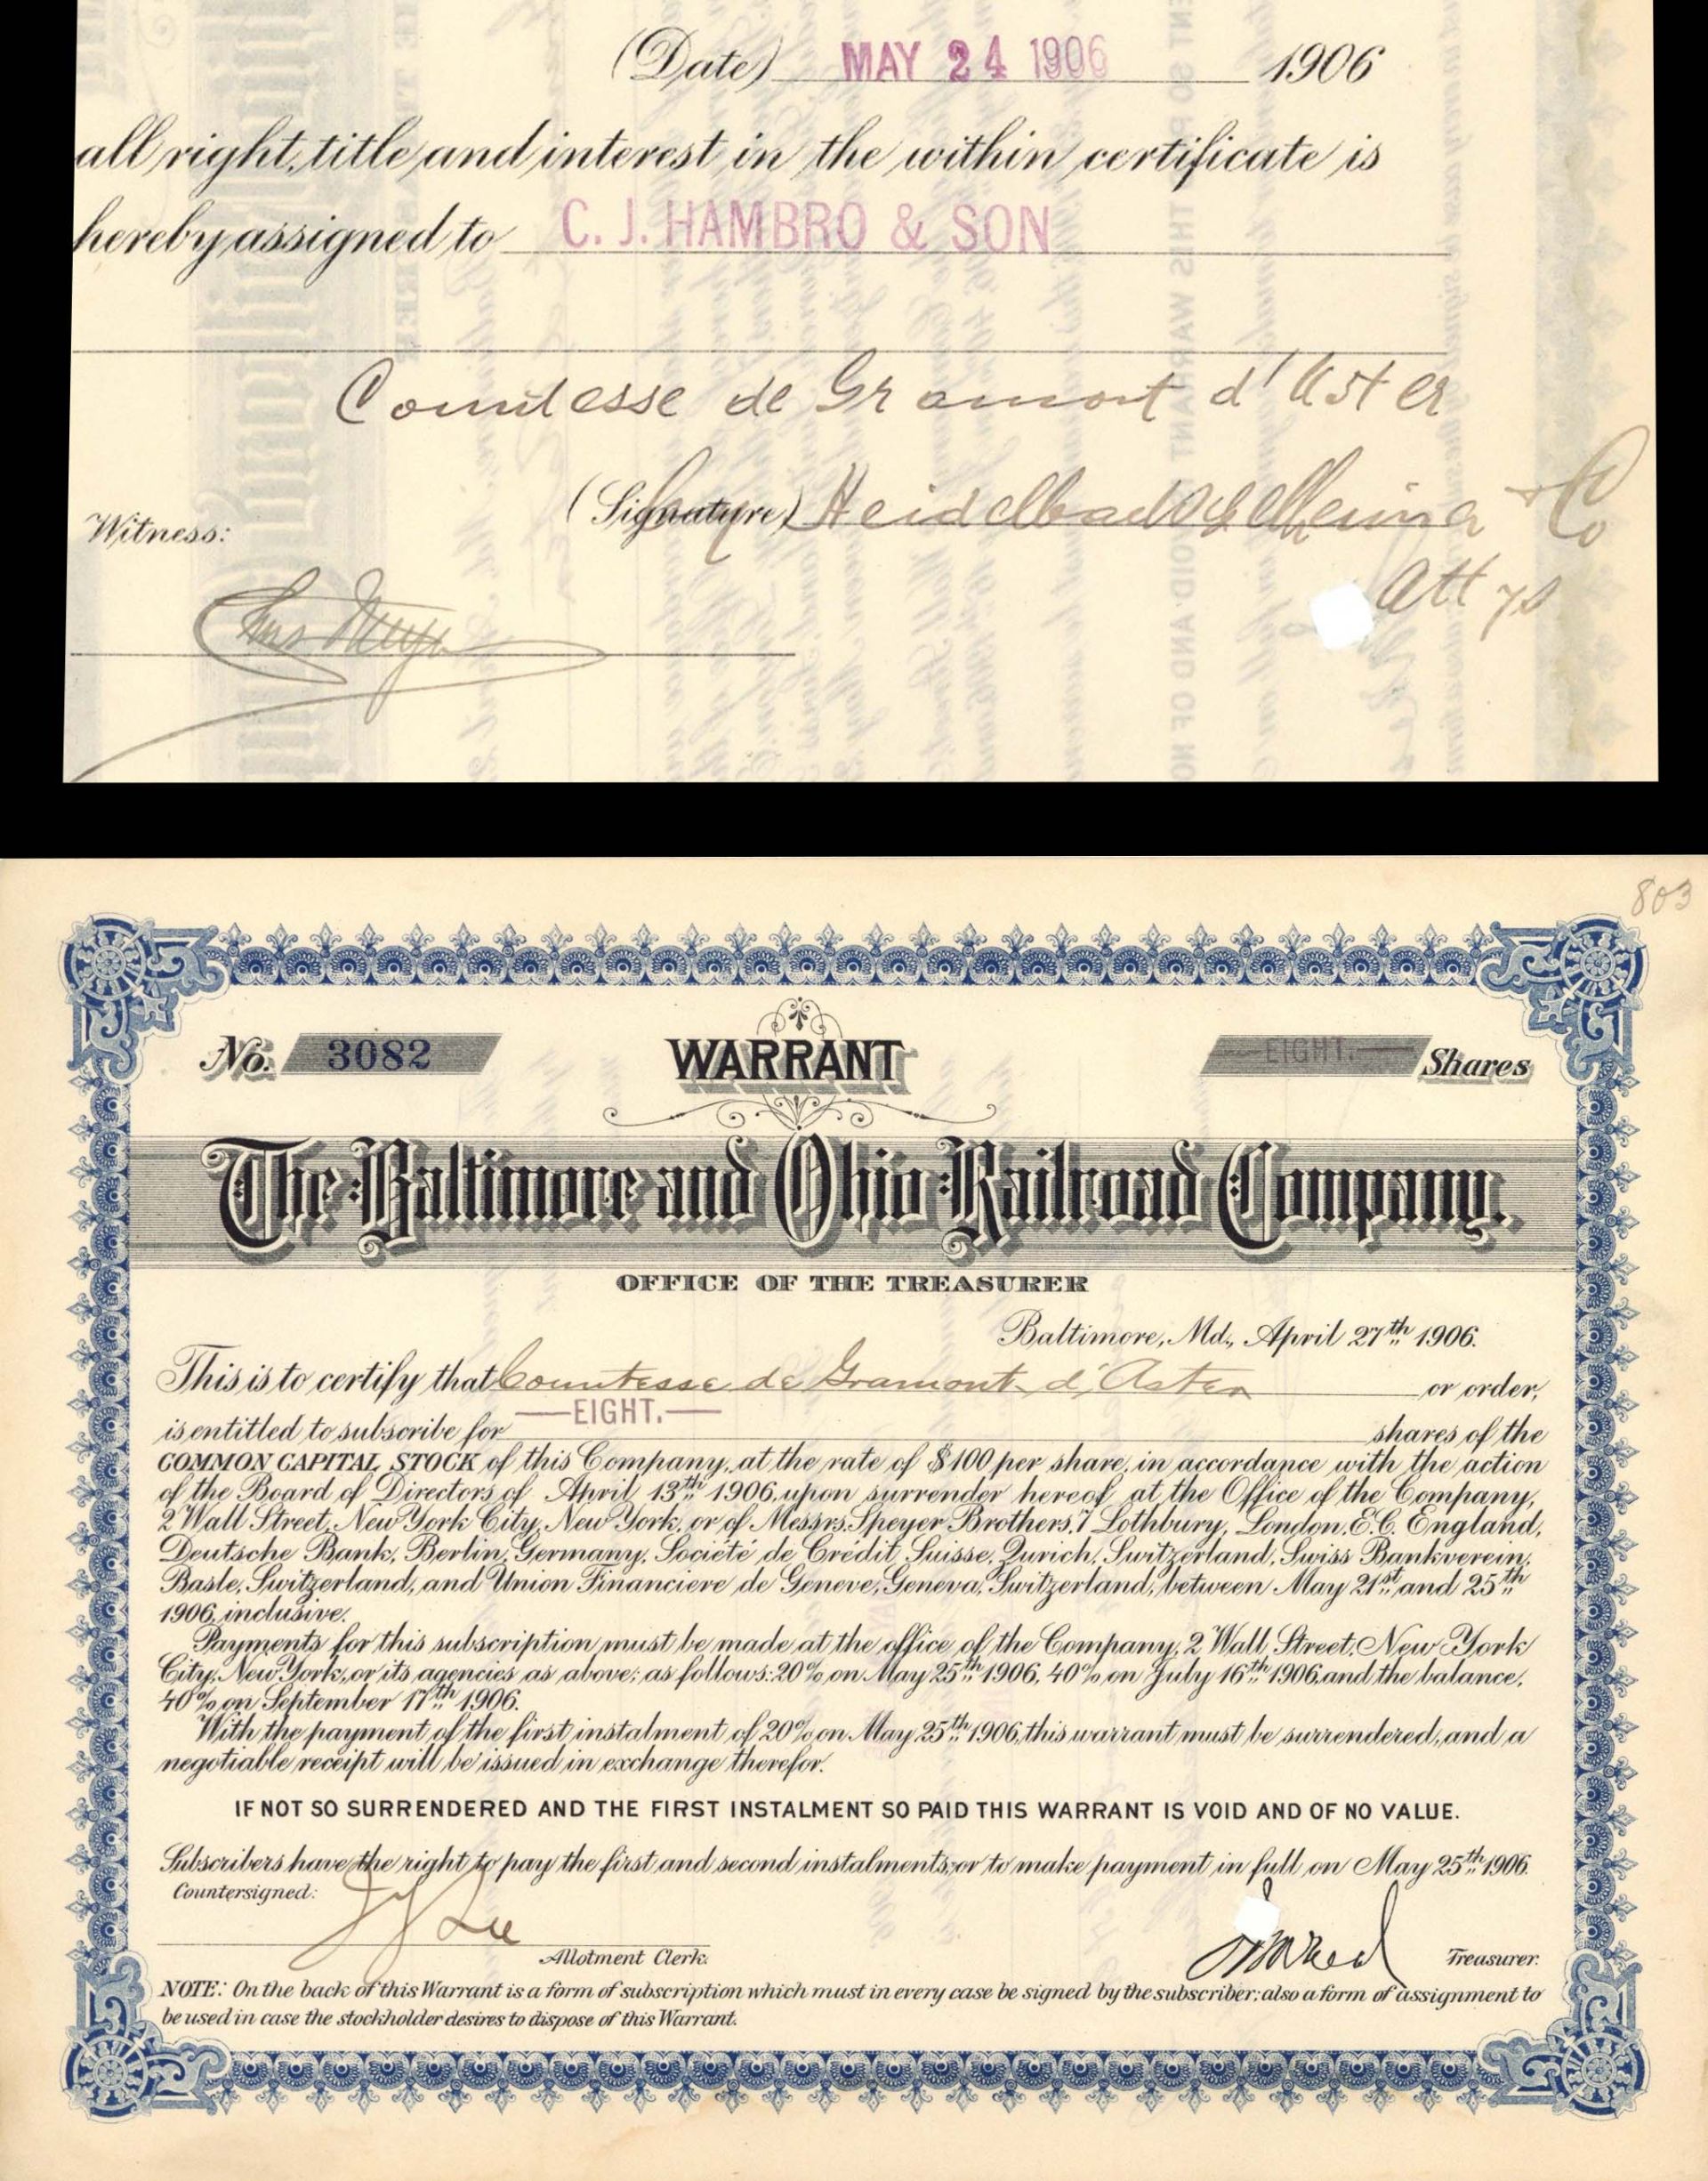 (Date) MAY 24 1906 1906
all right, title and interest in the within certificate is
hereby assigned to C. J. HAMBRO & SON
Comtesse de Gramont d'Aster
(Signature) Heidelbach Ickelheimer & Co
Attys
Witness:
803
No. 3082 WARRANT EIGHT. Shares
The Baltimore and Ohio Railroad Company.
OFFICE OF THE TREASURER
Baltimore, Md., April 27th 1906.
This is to certify that Comtesse de Gramont d'Aster or order,
is entitled to subscribe for EIGHT. shares of the
COMMON CAPITAL STOCK of this Company, at the rate of $100 per share, in accordance with the action
of the Board of Directors of April 13th 1906, upon surrender hereof at the Office of the Company,
2 Wall Street, New York City, New York, or of Messrs. Speyer Brothers, 7 Lothbury, London, E.C. England,
Deutsche Bank, Berlin, Germany, Société de Crédit Suisse, Zurich, Switzerland, Swiss Bankverein,
Basle, Switzerland, and Union Financiere de Geneve, Geneva, Switzerland, between May 21st and 25th
1906, inclusive.
Payments for this subscription must be made at the office of the Company, 2 Wall Street, New York
City, New York, or its agencies as above; as follows: 20% on May 25th 1906, 40% on July 16th 1906, and the balance,
40% on September 17th 1906.
With the payment of the first instalment of 20% on May 25th 1906, this warrant must be surrendered, and a
negotiable receipt will be issued in exchange therefor.
IF NOT SO SURRENDERED AND THE FIRST INSTALMENT SO PAID THIS WARRANT IS VOID AND OF NO VALUE.
Subscribers have the right to pay the first and second instalments, or to make payment in full on May 25th 1906.
Countersigned:
Lee
Allotment Clerk. Treasurer.
NOTE: On the back of this Warrant is a form of subscription which must in every case be signed by the subscriber; also a form of assignment to
be used in case the stockholder desires to dispose of this Warrant.